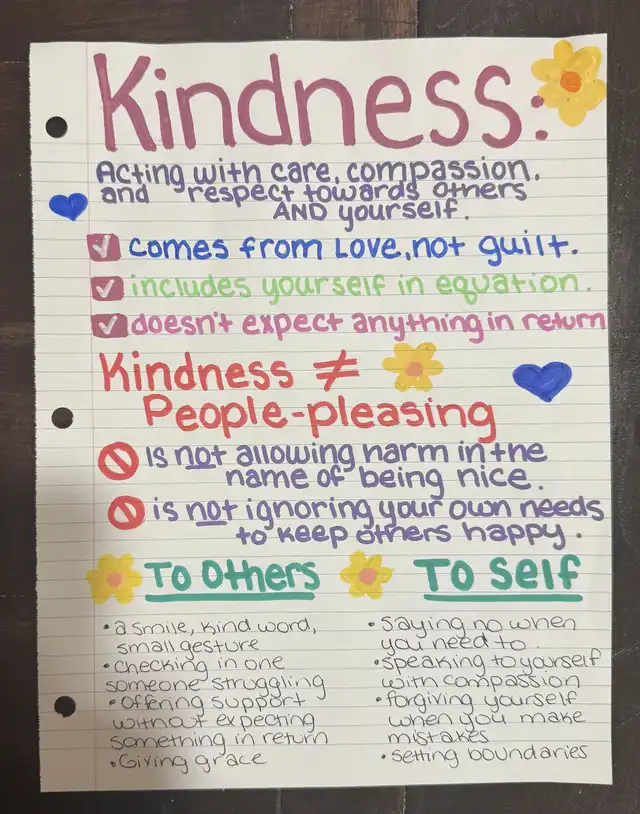 Kindness:
Acting with care, compassion,
and respect towards others
AND yourself.
comes from Love, not guilt.
includes yourself in equation.
doesn't expect anything in return
Kindness ≠
People-pleasing
Is not allowing harm in the
name of being nice.
is not ignoring your own needs
to keep others happy.
To Others
• a smile, kind word,
small gesture
• checking in one
someone struggling
• offering support
without expecting
something in return
• Giving grace
To Self
• saying no when
you need to.
• speaking to yourself
with compassion
• forgiving yourself
when you make
mistakes
• setting boundaries